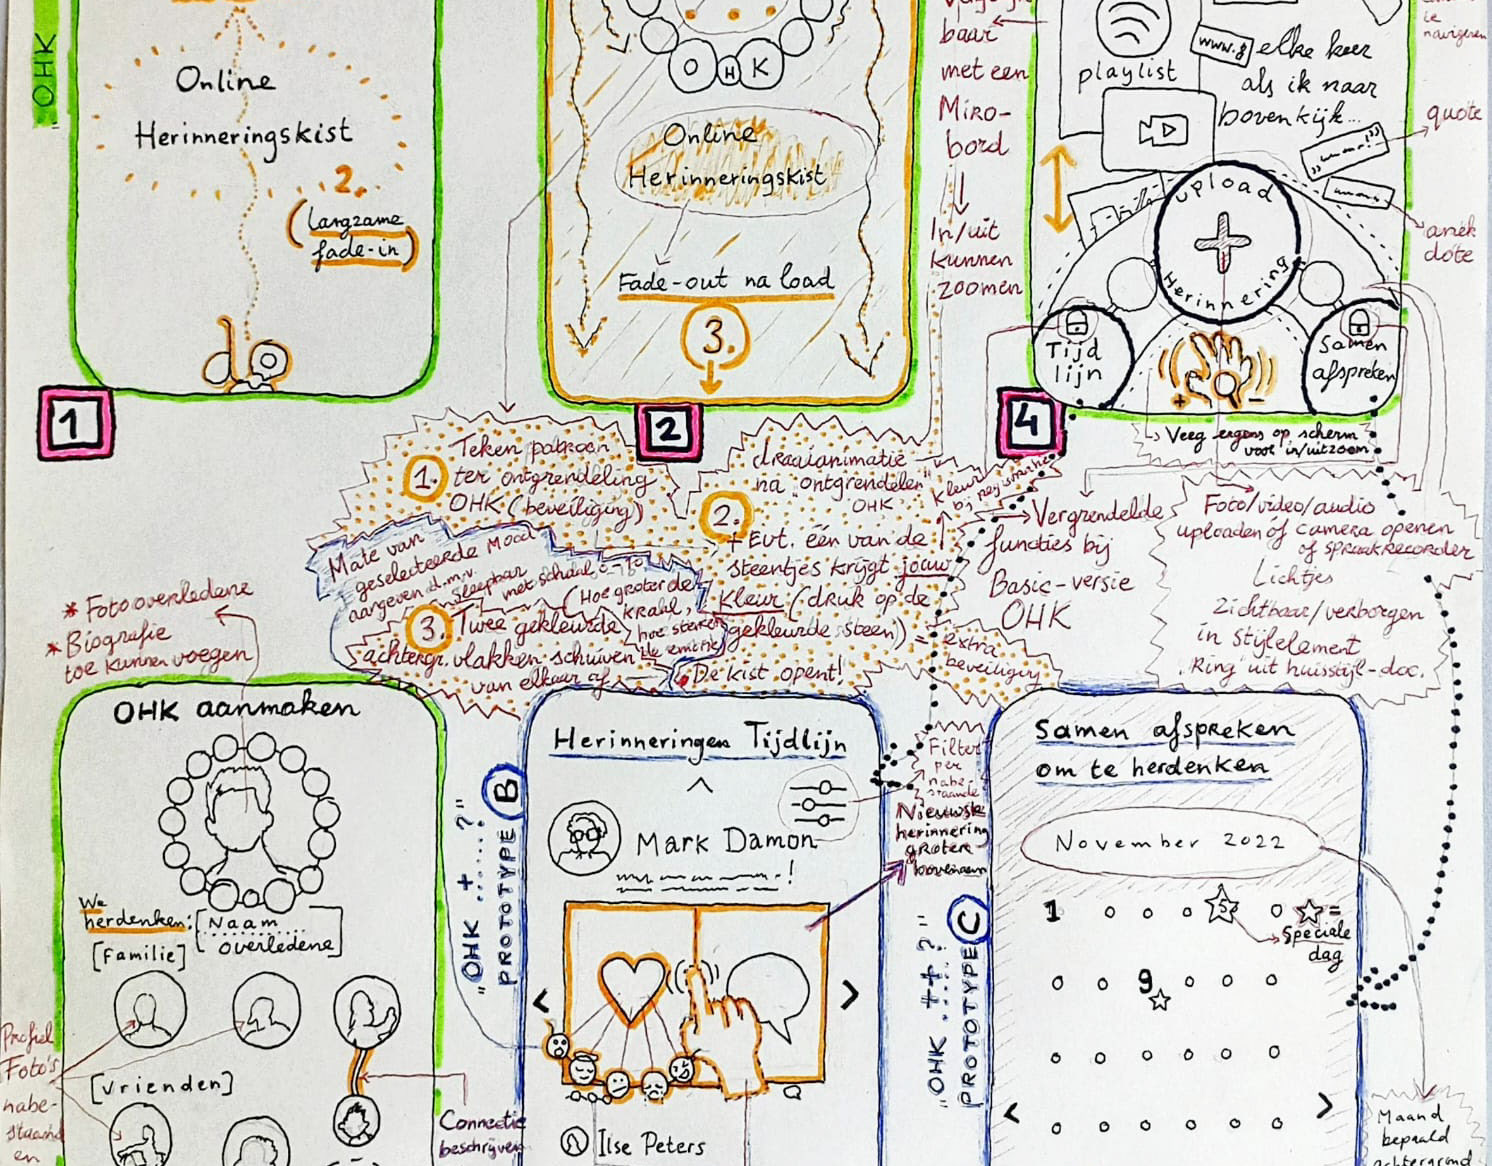 OHK
Online
Herinneringskist
2.
(langzame
fade-in)
1
O H K
Online
Herinneringskist
Fade-out na load
3.
2
baar
met een
Miro-
bord
In/uit
kunnen
zoomen
playlist
elke keer
als ik naar
boven kijk...
te
navigeren
quote
anek
dote
upload
Herinnering
Tijd
lijn
Samen
afspreken
+ -
4
↳ Veeg ergens op scherm
voor in/uitzoom
1. Teken patroon
ter ontgrendeling
OHK (beveiliging)
2. draaianimatie
na "ontgrendelen"
OHK
+ Evt. één van de
steentjes krijgt jouw
kleur (druk op de
gekleurde steen) =
extra
beveiliging
Kleur
bij registratie
Mate van
geselecteerde Mood
aangeven d.m.v.
sleepbar
met schaal 0-10
(Hoe groter de
kraal,
hoe sterker
de emotie)
3. Twee gekleurde
achtergr. vlakken schuiven
van elkaar af
De kist opent!
Vergrendelde
functies bij
Basic-versie
OHK
Foto/video/audio
uploaden óf camera openen
of spraakrecorder
Lichtjes
Zichtbaar/verborgen
in stijlelement
"Ring" uit huisstijl-doc.
* Foto overledene
* Biografie
toe kunnen voegen
OHK aanmaken
We
herdenken:
[Naam
overledene]
[Familie]
[Vrienden]
Profiel
Foto's
nabe-
staand
en
Connectie
beschrijven
"OHK .+.....?"
PROTOTYPE B
Herinneringen Tijdlijn
Mark Damon
Ilse Peters
Filter
per
nabe-
staande
Nieuwste
herinnering
groter
bovenaan
"OHK .++..?"
PROTOTYPE C
Samen afspreken
om te herdenken
November 2022
1
5
=
Speciale
dag
9
Maand
bepaald
achtergrond